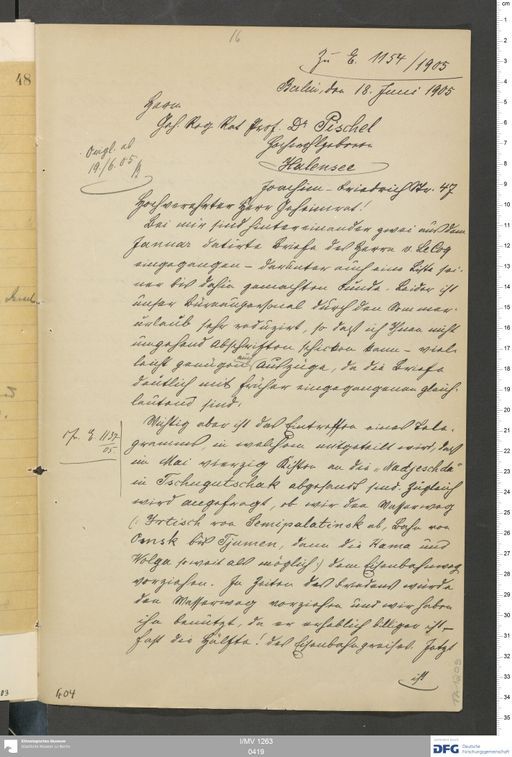 16
zu E. 1154/1905
Berlin, den 18. Juni 1905
Herrn
Geh. Reg. Rat Prof. Dr Pischel
Hochwohlgeboren
Halensee
Joachim-Friedrich Str. 47
Orgl. ab
19/6.05
Hochverehrter Herr Geheimrat!
Bei mir sind hintereinander zwei aus dem
Januar datirte Briefe des Herrn v. LeCoq
eingegangen – darunter auch eine Liste sei-
ner bis dahin gemachten Funde. Leider ist
unser Büreaupersonal durch den Sommer-
urlaub sehr reduzirt, so daß ich Ihnen nicht
umgehend Abschriften schicken kann – viel-
leicht genügen auch Auszüge, da die Briefe
deutlich mit früher eingegangenen gleich-
lautend sind.
E 1137/05.
Wichtig aber ist das Eintreffen eines Tele-
gramms, in welchem mitgeteilt wird, daß
im Mai vierzig Kisten an die „Nadjeschda"
in Tschugutschak abgesandt sind. Zugleich
wird angefragt, ob wir den Wasserweg
(: Irtisch von Semipalatinsk ab, Bahn von
Omsk bis Tjumen, dann die Kama und
Wolga soweit als möglich :) dem Eisenbahnweg
vorziehen. In Zeiten des Friedens würde
den Wasserweg vorziehen und wir haben
ihn benutzt, da er erheblich billiger ist –
fast die Hälfte! des Eisenbahnpreises. Jetzt
ist
404
48
I/MV 1263
0419
Ethnologisches Museum
Staatliche Museen zu Berlin
DFG Deutsche
Forschungsgemeinschaft